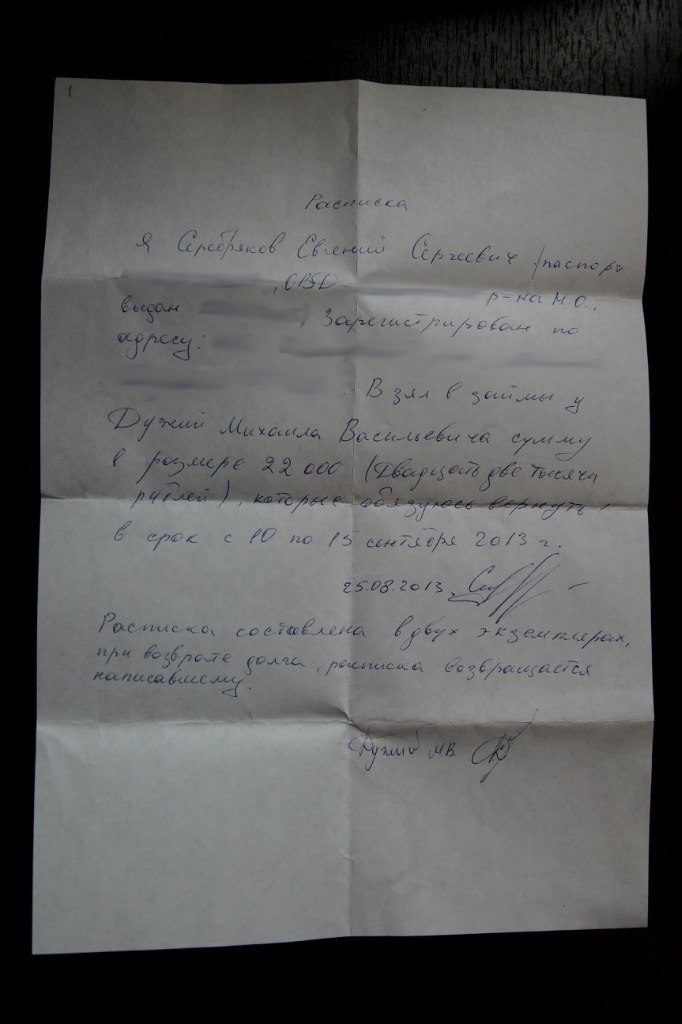 1
Расписка
Я Серебряков Евгений Сергеевич /паспорт
, ОВД
р-на М.О.,
выдан , Зарегистрирован по
адресу:
Взял в займы у
Дужий Михаила Васильевича сумму
в размере 22 000 (Двадцать две тысячи
рублей), которые обязуюсь вернуть
в срок с 10 по 15 сентября 2013 г.
25.08.2013
Расписка составлена в двух экземплярах,
при возврате долга, расписка возвращается
написавшему.
Дужий МВ